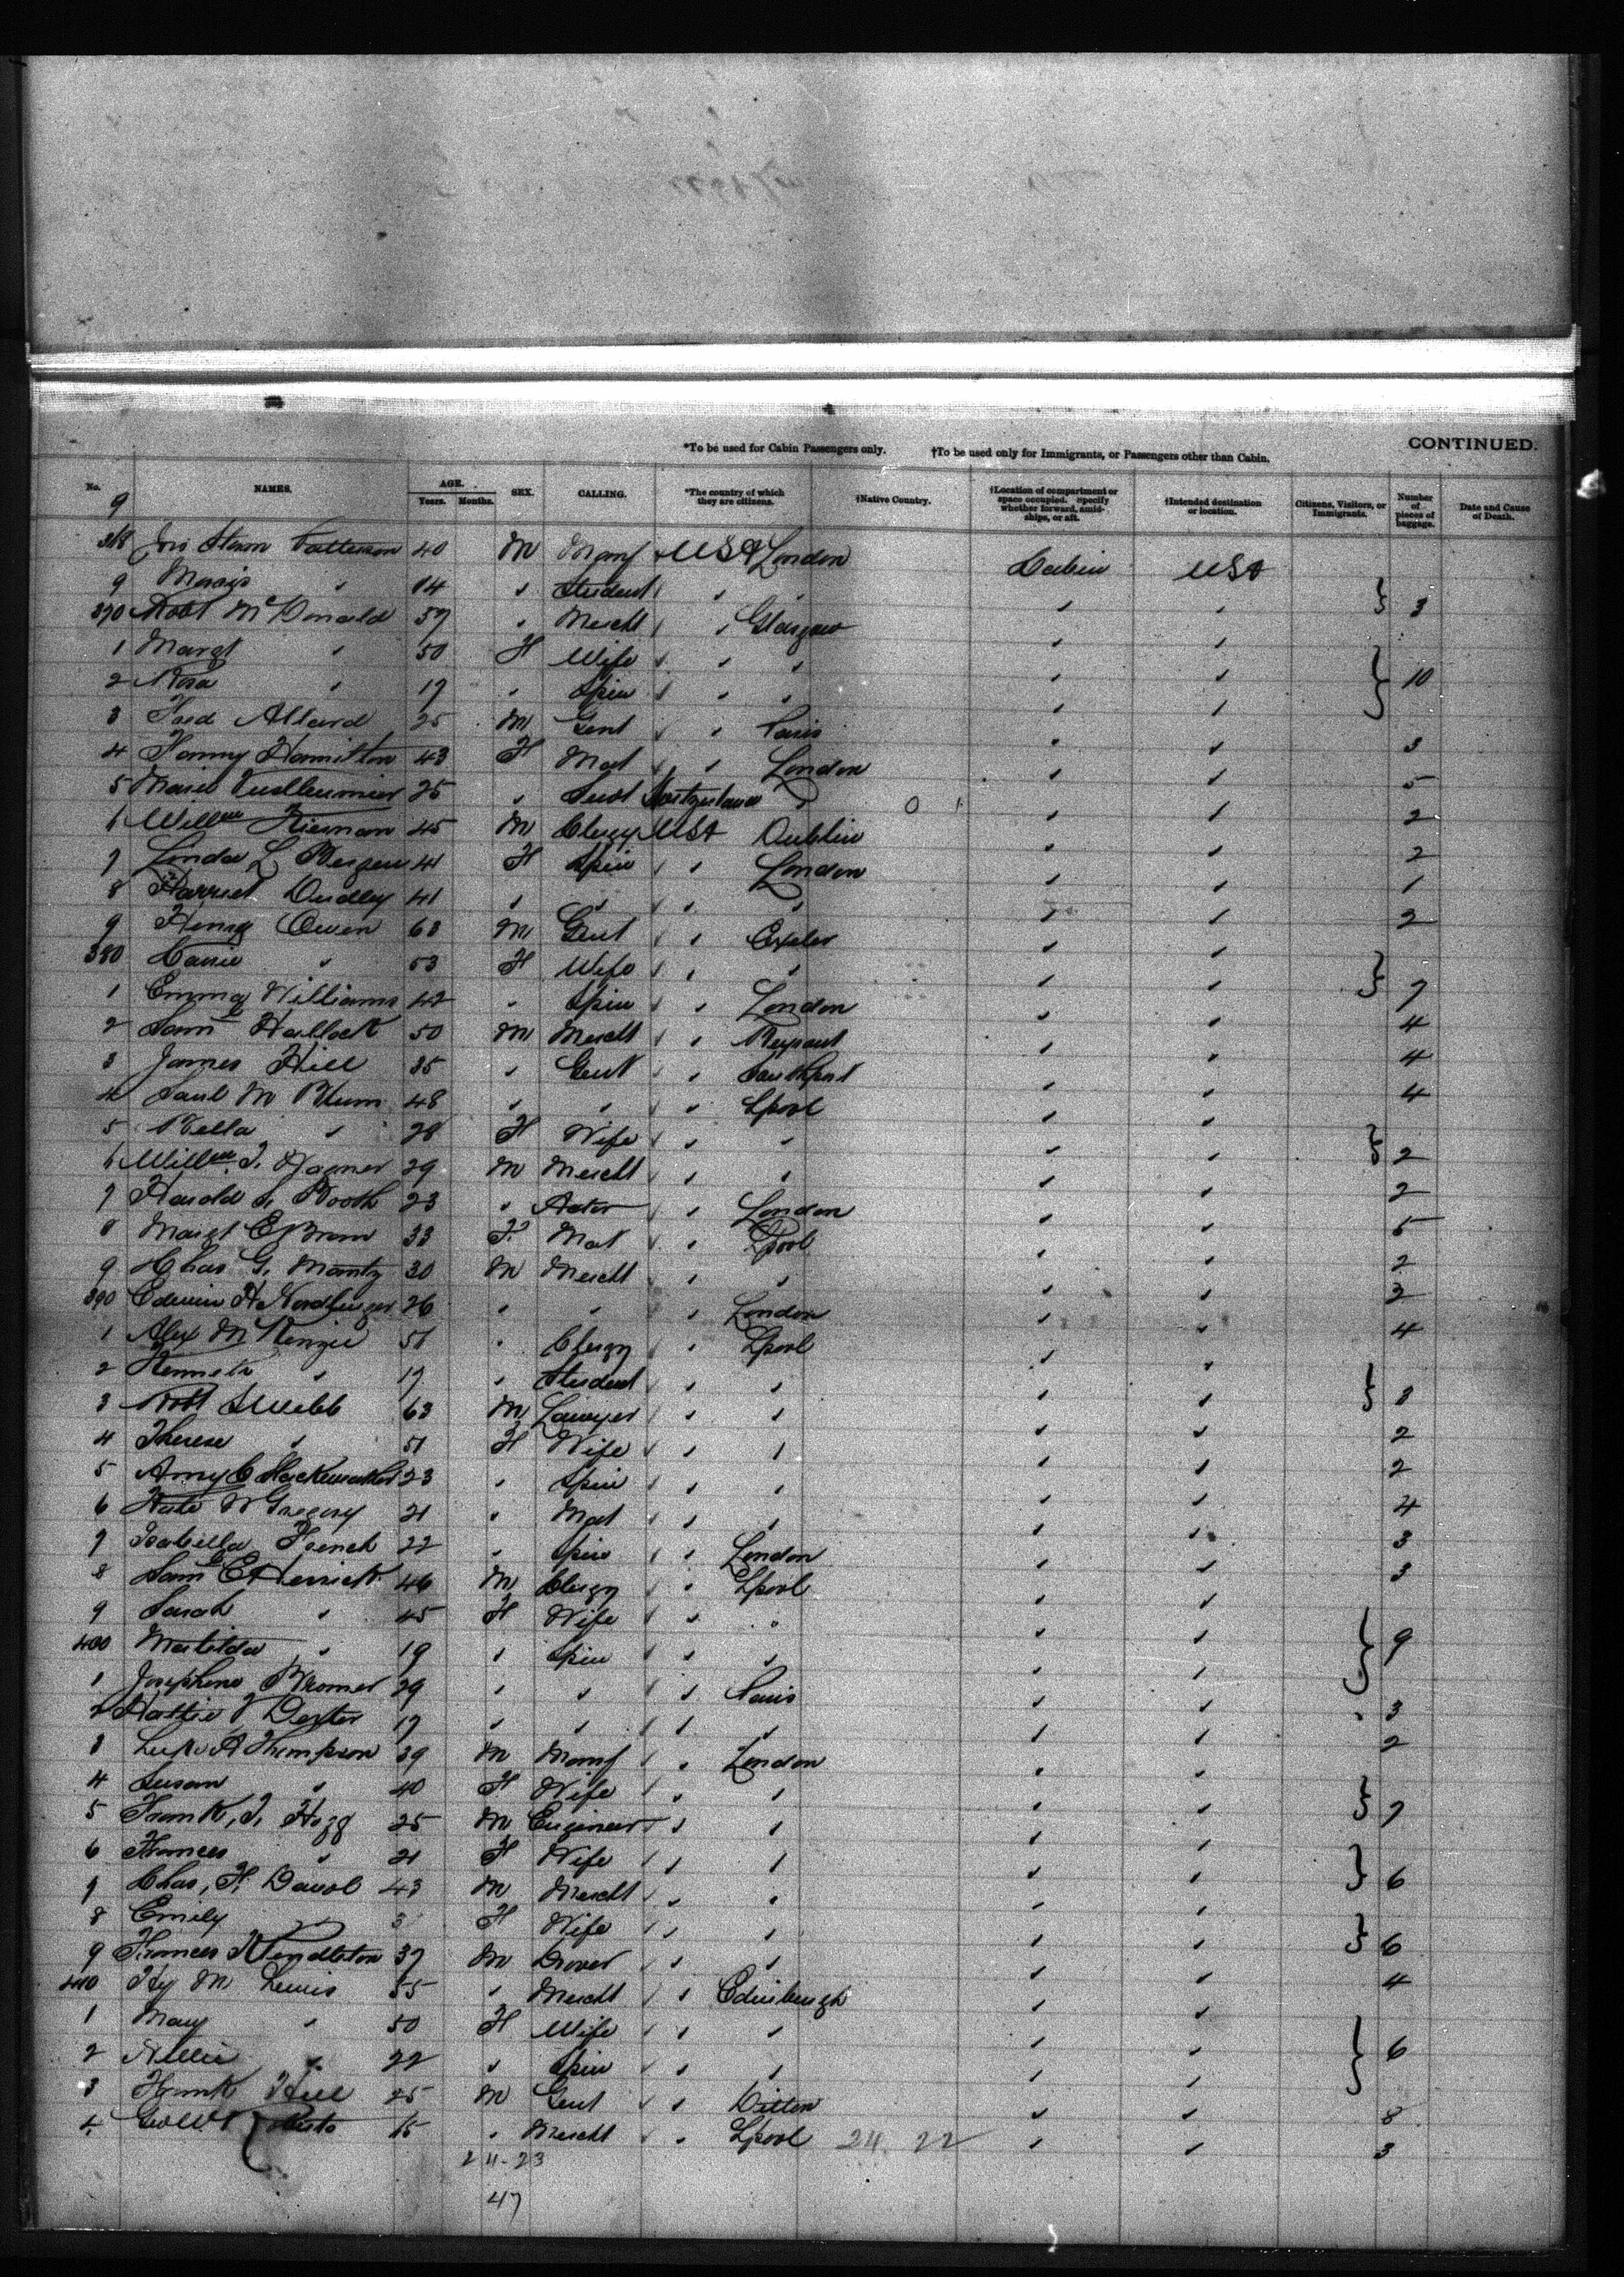 CONTINUED.
*To be used for Cabin Passengers only. †To be used only for Immigrants, or Passengers other than Cabin.
No. NAMES. AGE. Years. Months. SEX. CALLING. *The country of which they are citizens. †Native Country. †Location of compartment or space occupied. Specify whether forward, amidships, or aft. †Intended destination or location. Citizens, Visitors, or Immigrants. Number of pieces of baggage. Date and Cause of Death.
9
368 Patterson 40 M Manf USA London Cabin USA
9 14 " Student " " " " } 3
370 Robt McDonald 57 " Mercht " Glasgow " "
1 Margt " 50 F Wife " " " "
2 Rosa " 17 " Spin " " " " } 10
3 Fred Allard 25 M Gent " Paris " " 3
4 Fanny Hamilton 43 F Mat " London " " 5
5 Marie 25 " Servt Switzerland " " " 2
6 Willm Kiernan 45 M Clergy USA Dublin " " 2
7 Linda L Bergen 41 F Spin " London " " 1
8 Harriet Dudley 41 " " " " " " 2
9 Henry Owen 63 M Gent " Exeter " "
380 Carrie " 53 F Wife " " " " } 7
1 Emma Williams 42 " Spin " London " " 4
2 Saml Hallock 50 M Mercht " " " 4
3 James Hill 35 " Gent " Southport " " 4
4 Saul M Blum 48 " " " Lpool " "
5 Bella " 28 F Wife " " " " } 2
6 Willm J. Wagner 29 M Mercht " " " " 2
7 Harold S. Booth 23 " Actor " London " " 5
8 Margt E Brom 33 F. Mat " Lpool " " 2
9 Chas G. Mantz 30 M Mercht " " " " 2
390 Edwin H Nordlinger 26 " " " London " " 4
1 Alex McKenzie 51 " Clergy " Lpool " "
2 Kenneth " 17 " Student " " " " } 3
3 Robt S Webb 63 M Lawyer " " " " 2
4 Therese " 51 F Wife " " " " 2
5 Amy C 23 " Spin " " " " 4
6 Kate W Gregory 21 " Mat " " " " 3
7 Isabella French 22 " Spin " London " " 3
8 Saml E Herrick 46 M Clergy " Lpool " "
9 Sarah " 45 F Wife " " " "
400 Matilda " 19 " Spin " " " " } 9
1 Josephine 29 " " " Paris " " 3
2 Hattie V Dexter 17 " " " " " " 2
3 A Thompson 39 M Manf " London " "
4 Susan " 40 F Wife " " " " } 7
5 Frank, J. Hogg 25 M Engineer " " " "
6 Frances " 21 F Wife " " " " } 6
7 Chas, F. Davol 43 M Mercht " " " "
8 Emily " F Wife " " " " } 6
9 Frances Pendleton 37 M Drover " " " " 4
410 Hy M Lewis 55 " Mercht " Edinburgh " "
1 Mary " 50 F Wife " " " "
2 Allie " 22 " Spin " " " " } 6
3 Frank Hill 25 M Gent " Ditton " " 8
4. Roberts " Mercht " Lpool 24. 22 " " 3
24-23
47